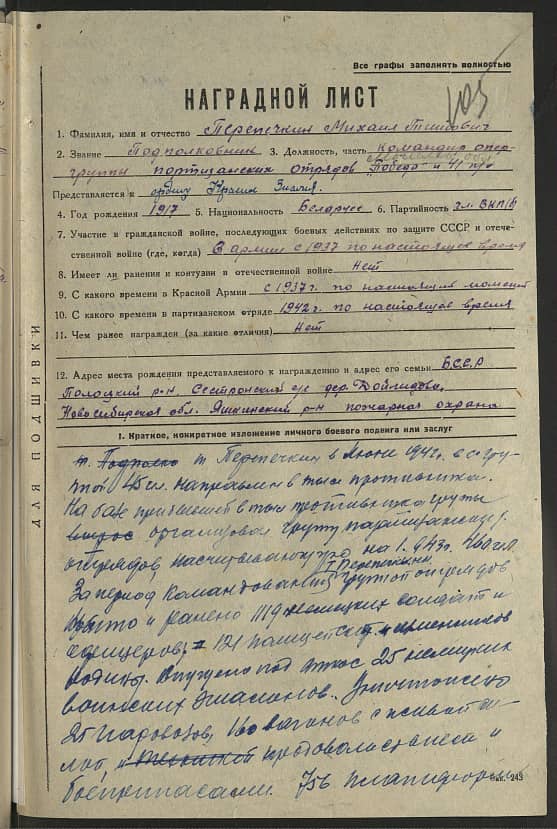 Все графы заполнять полностью
105
НАГРАДНОЙ ЛИСТ
1. Фамилия, имя и отчество Перепечкин Михаил Титович
2. Звание Подполковник 3. Должность, часть командир опер-
группы партизанских отрядов "Победа" и
Представляется к ордену Красн. Знамя.
4. Год рождения 1917 5. Национальность Беларусс 6. Партийность чл. ВКП(б)
7. Участие в гражданской войне, последующих боевых действиях по защите СССР и отече-
ственной войне (где, когда) В армии с 1937 по настоящее время
8. Имеет ли ранения и контузии в отечественной войне Нет
9. С какого времени в Красной Армии с 1937г. по настоящий момент
10. С какого времени в партизанском отряде 1942г. по настоящее время
11. Чем ранее награжден (за какие отличия) Нет
12. Адрес места рождения представляемого к награждению и адрес его семьи Б.С.С.Р
Полоцкий р-н. с/с дер.
Новосибирская обл. Яшкинский р-н пожарная охрана
ДЛЯ ПОДШИВКИ
I. Краткое, конкретное изложение личного боевого подвига или заслуг
т. Перепечкин в Июне 1942г. в с груп-
пой 45 чел. направлен в тыл противника.
На базе в тыл противника группы
организовал группу партизанских
отрядов, насчитывающую на 1. 943г. чел.
За период командования т Перепечкина группой отрядов
убито и ранено немецких солдат и
офицеров, 121 полицейских и изменников
родины. Спущено под откос 25 немецких
воинских эшалонов. Уничтожено
25 паровозов, 160 вагонов с живой си-
лой и продовольствием и
боеприпасами. 756 платформ
Зак. 243